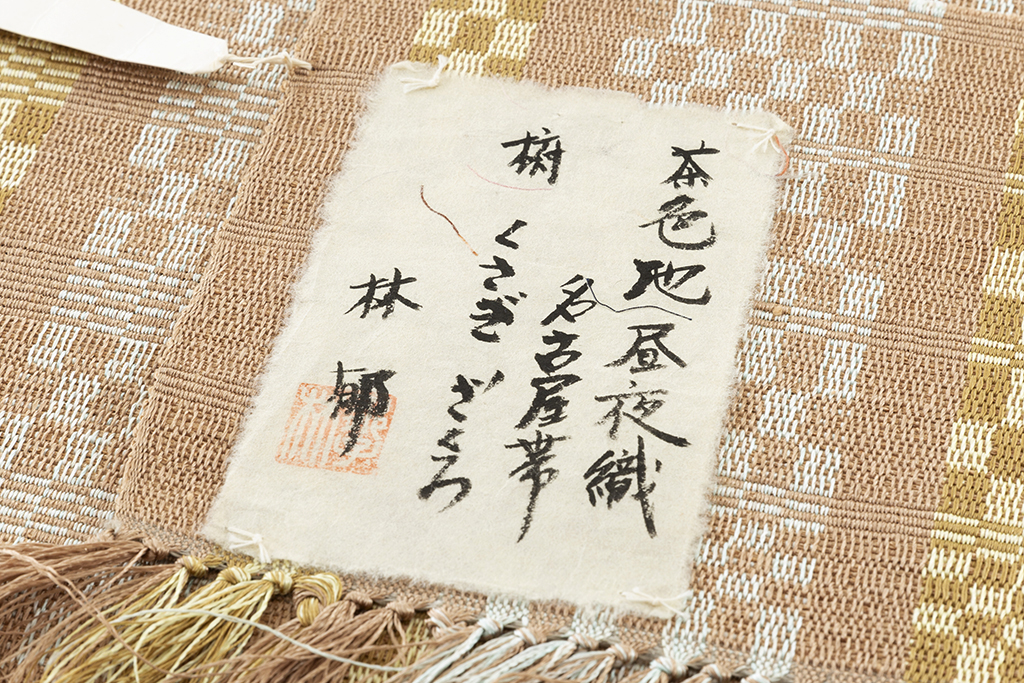 茶色地昼夜織
名古屋帯
くさぎ ざくろ
林 郁